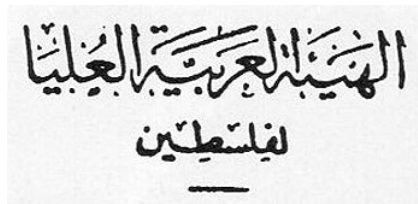 الهيئة العربية العليا
لفلسطين